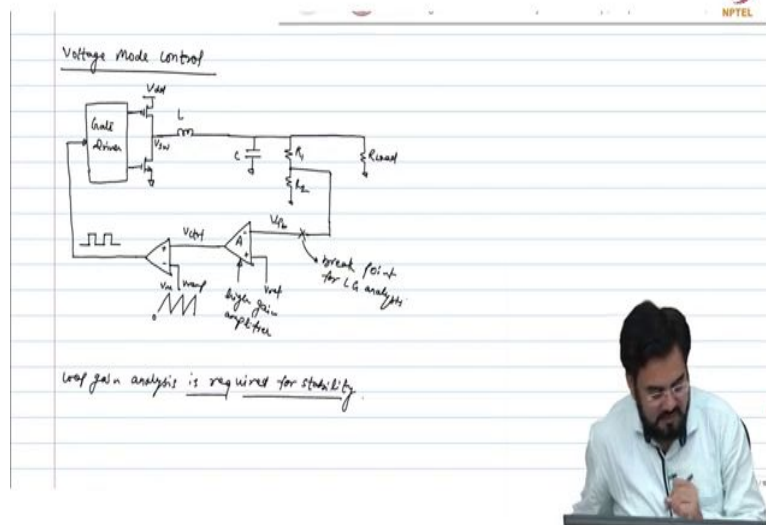 NPTEL
Voltage Mode Control
Vdd
Gate
Driver
L
Vsw
C
R1
R2
Rload
Vfb
Vctrl
A
+
-
+
-
Vm
Vramp
Vref
0
high gain
amplifier
break point
for LG analysis
loop gain analysis is required for stability.